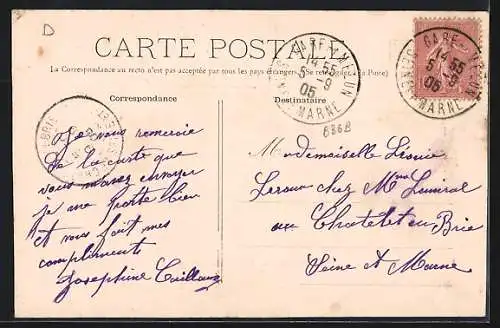 D
CARTE POSTALE
La Correspondance au recto n'est pas acceptée par tous les pays étrangers (Se renseigner à la Poste)
Correspondance
Destinataire
GARE
14 55
5 - 9
05
MARNE
GARE
14 55
5 - 9
05
MARNE
BRIE
B86B
Je vous remercie
De la carte que
vous m'avez envoyer
je me porte bien
et vous fait mes
compliments
Josephine
Mademoiselle Léonie
Leroux chez Mme
au Chatelet en Brie
Seine et Marne